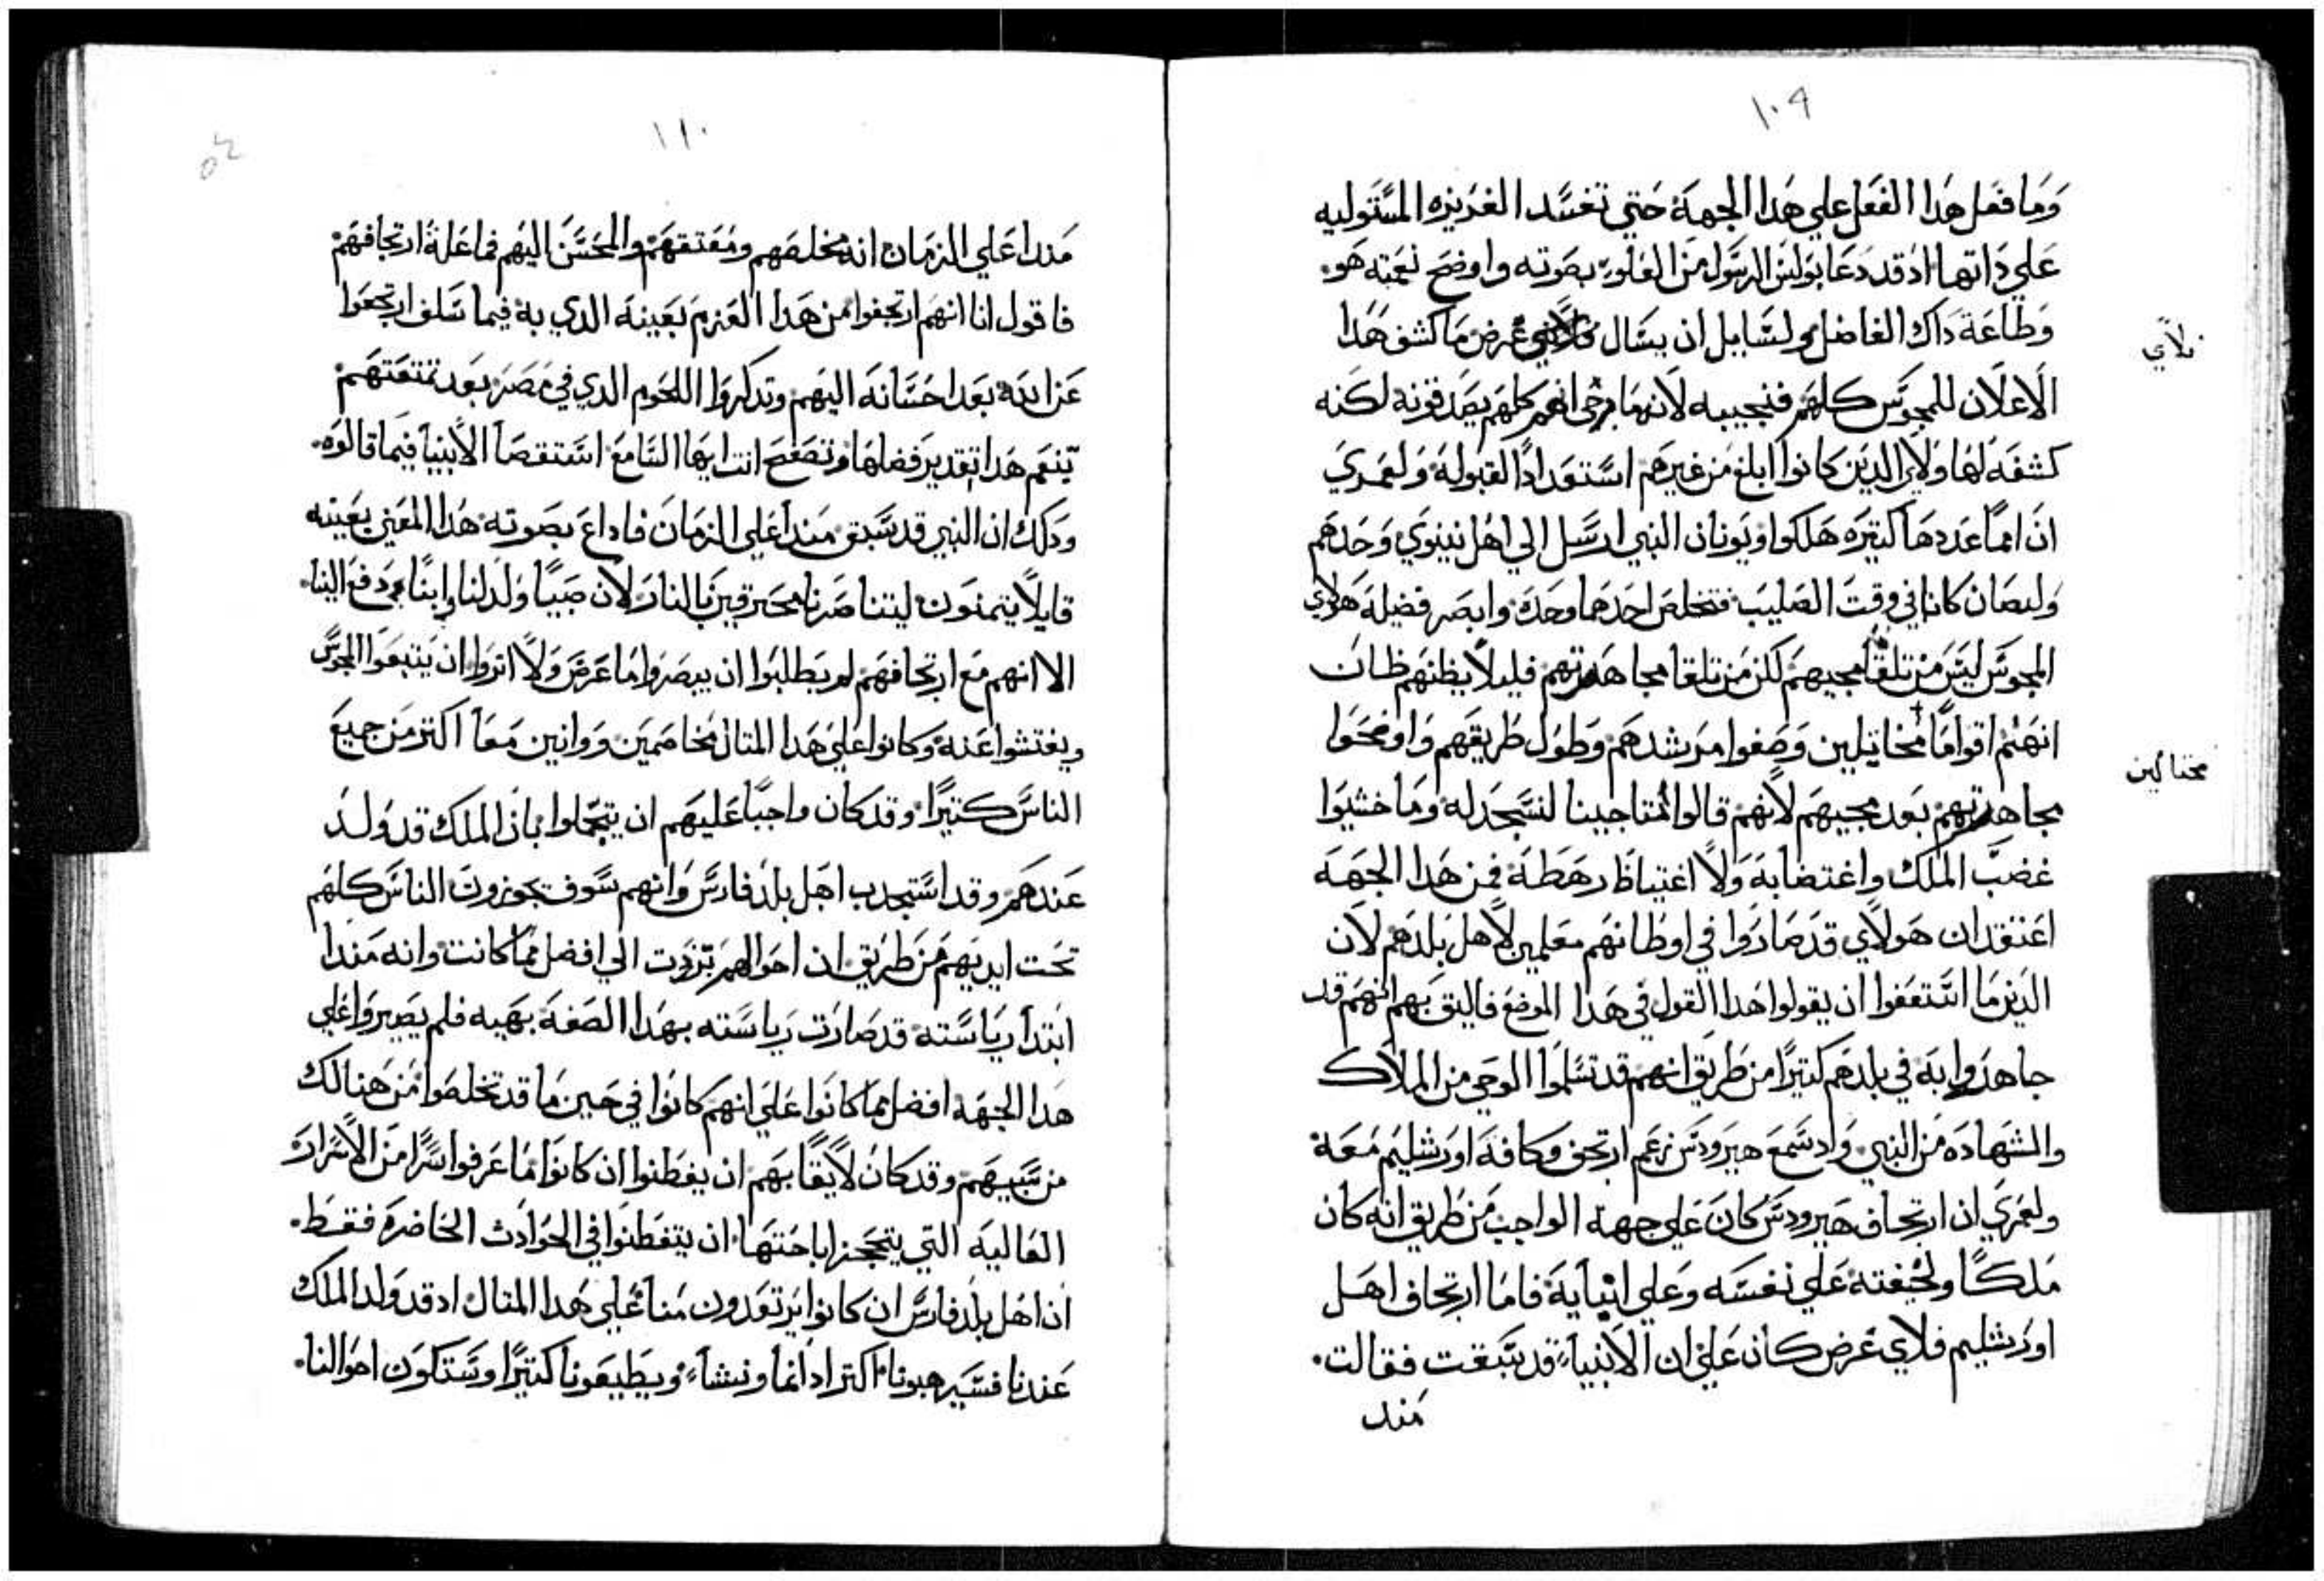 ١٠٩
وما فعل هدا الفعل علي هدا الجهة حتي تفسد الغريزه المستوليه
علي داتها اد قد دعا بولس الرسول من العلو بصوته واوضح نعمته هو
وطاعة داك الفاضل ولسايل ان يسال غرض ما كشف هدا
بلاي
الاعلان للمجوس كلهم فنجيبه لانه ما رجي انهم كلهم يصدقونه لكنه
كشفه لهاولاي الدين كانوا ابلغ من غيرهم استعدادًا لقبوله ولعمري
ان امما عددها كتيره هلكوا ويونان النبي ارسل الي اهل نينوي وحدهم
ولصان كانا في وقت الصليب فتخلص احدهما وحده وابصر فضيلة هولاي
المجوس ليس من تلقا مجيهم لكن من تلقا مجاهرتهم فليلا يظنهم ظان
انهم اقوامًا مخاتيلين وصفوا مرشدهم وطول طريقهم واوضحوا
محتالين
مجاهرتهم بعد مجيهم لانهم قالوا اننا جينا لنسجد له وما خشيوا
غضب الملك واغتضابه ولا اغتياظ رهطه فمن هدا الجهه
اعتقد ان هولاي قد صاروا في اوطانهم معلمين لاهل بلدهم لان
الدين ما استعفوا ان يقولوا هدا القول في هدا الموضع فاليق بهم انهم قد
جاهروا به في بلدهم كتيرًا من طريق انهم قد تسلموا الوحي من الملاك
والشهاده من النبي واد سمع هيرودس زعم ارتجف وكافة اورشليم معه
ولعمري ان ارتجاف هيرودس كان علي جهة الواجب من طريق انه كان
ملكًا ولخيفته علي نفسه وعلي ابنايه فاما ارتجاف اهل
اورشليم فلاي غرض كان علي ان الانبياء قد سبقت فقالت
مند
١١٠
مندا علي الزمان انه مخلصهم ومعتقهم والمحسن اليهم فما علة ارتجافهم
فاقول انا انهم ارتجفوا من هدا العزم بعينه الدي به فيما سلف ارتجعوا
عن الله بعد احسانه اليهم وتدكروا اللحوم الدي في مصر بعد تمتعتهم
بنعم هدا تقدير فضلها وتصفح انت ايها السامع استقصا الانبيا فيما قالوه
ودلك ان النبي قد سبق مندا علي الزمان فاداع بصوته هدا المعني بعينه
قايلا يتمنون ليتنا صرنا محترقين بالنار لان صبيًا ولد لنا وابنًا دفع الينا
الا انهم مع ارتجافهم لم يطلبوا ان يبصروا ما عرض ولا اتروا ان يتبعوا المجوس
ويفتشوا عنه وكانوا علي هدا المتال مخاصمين ووانين معا اكتر من جميع
الناس كتيرًا وقد كان واجبًا عليهم ان يتجملوا بان الملك قد ولد
عندهم وقد استجدب اهل بلد فارس وانهم سوف يحوزون الناس كلهم
تحت ايديهم من طريق ان احوالهم برزت الي افضل مما كانت وانه مندا
ابتدا رياسته قد صارت رياسته بهدا الصفة بهيه فلم يصيروا علي
هدا الجهه افضل مما كانوا علي انهم كانوا في حين ما قد تخلصوا من هنالك
من سبيهم وقد كان لايقًا بهم ان يفطنوا ان كانوا ما عرفوا سرًا من الاسرار
العاليه التي يتحجز اباحتها ان يتفطنوا في الحوادث الحاضره فقط
ان اهل بلد فارس ان كانوا يرتعدون منا علي هدا المتال اد قد ولد الملك
عندنا فسيرهبونا اكتر ادا نما ونشاء ويطيعونا كتيرًا وستكون احوالنا